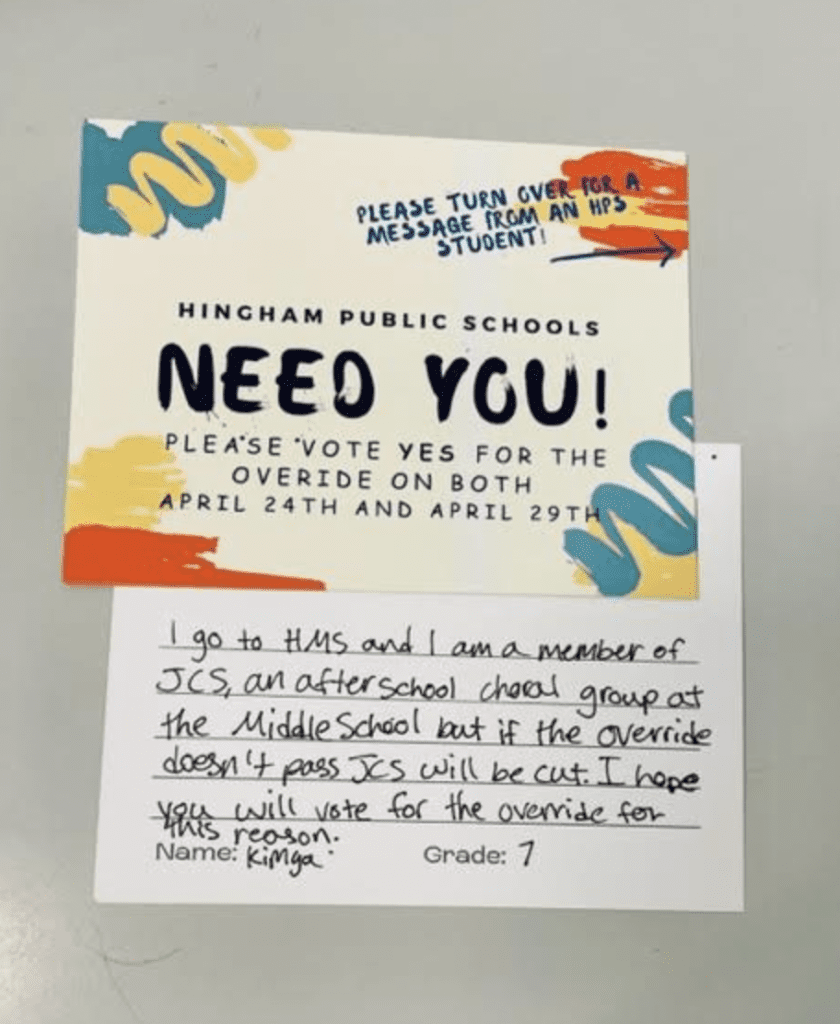 PLEASE TURN OVER FOR A
MESSAGE FROM AN HPS
STUDENT!
HINGHAM PUBLIC SCHOOLS
NEED YOU!
PLEASE VOTE YES FOR THE
OVERIDE ON BOTH
APRIL 24TH AND APRIL 29TH
I go to HMS and I am a member of
JCS, an after school choral group at
the Middle School but if the override
doesn't pass JCS will be cut. I hope
you will vote for the override for
this reason.
Name: Kimya Grade: 7